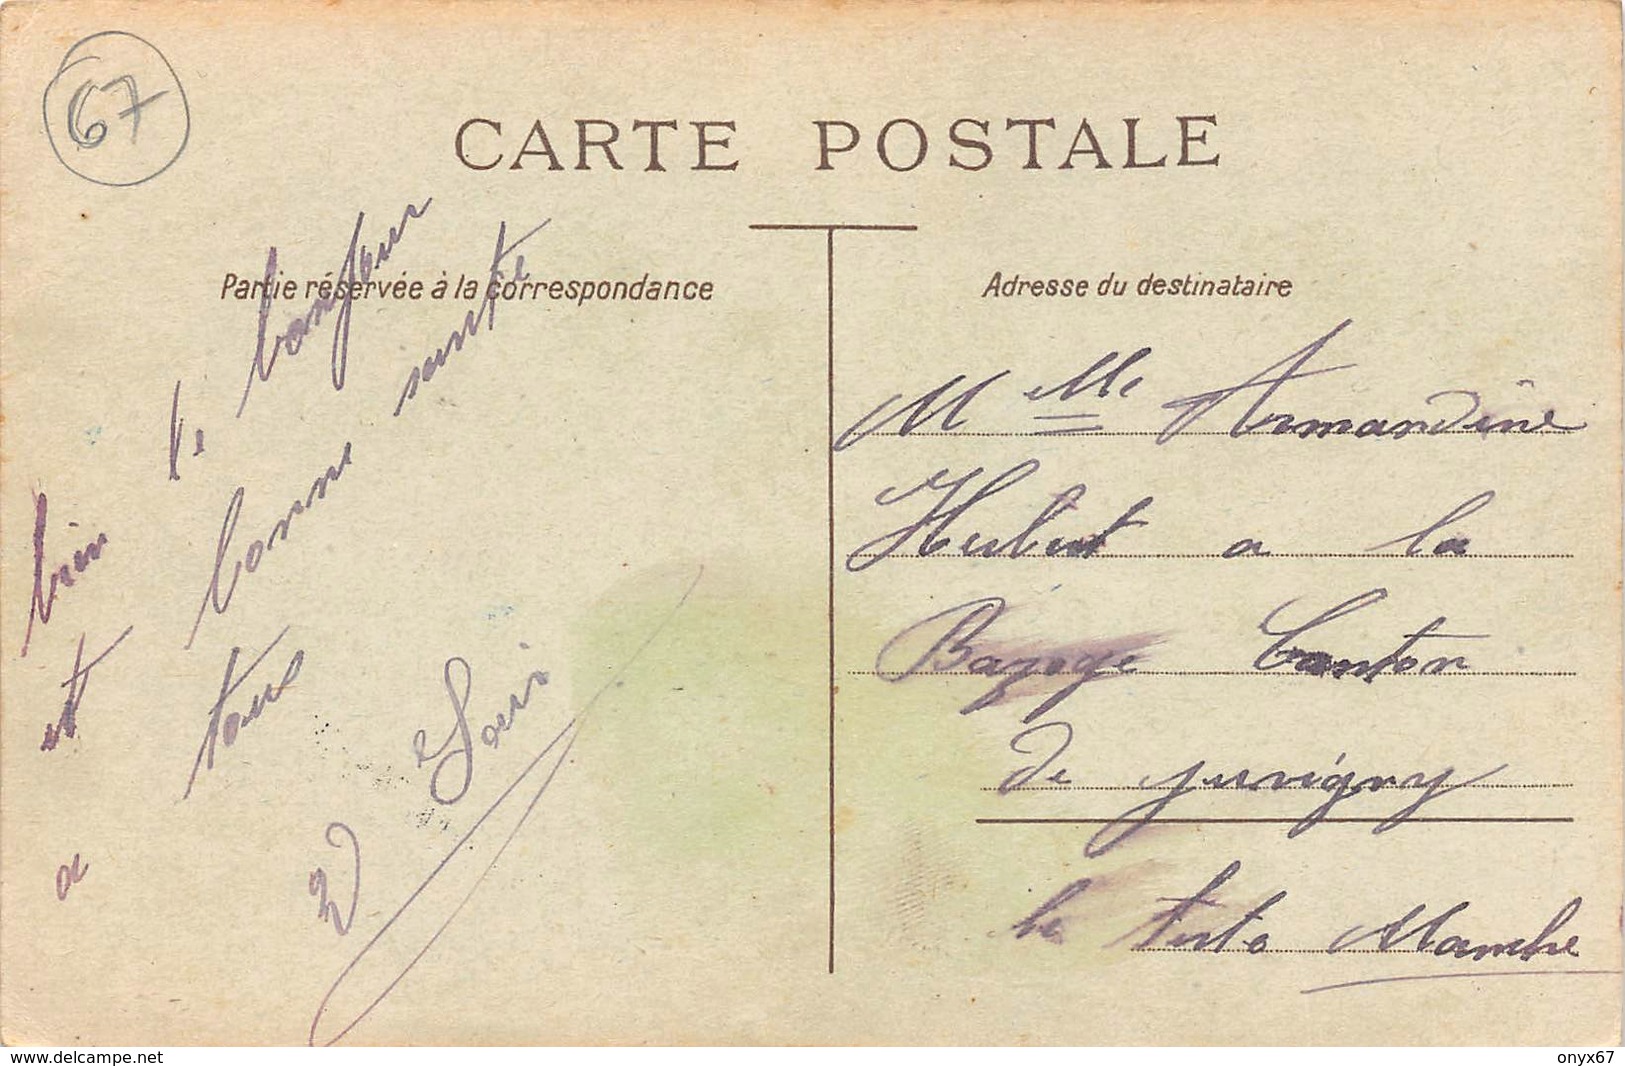 67
CARTE POSTALE
Partie réservée à la correspondance
bien le bonjour
et bonne santé
a tous
Adresse du destinataire
Melle Armandine
Hubert a la
Bazoge Canton
de juvigny
le tertre Manche
www.delcampe.net
onyx67